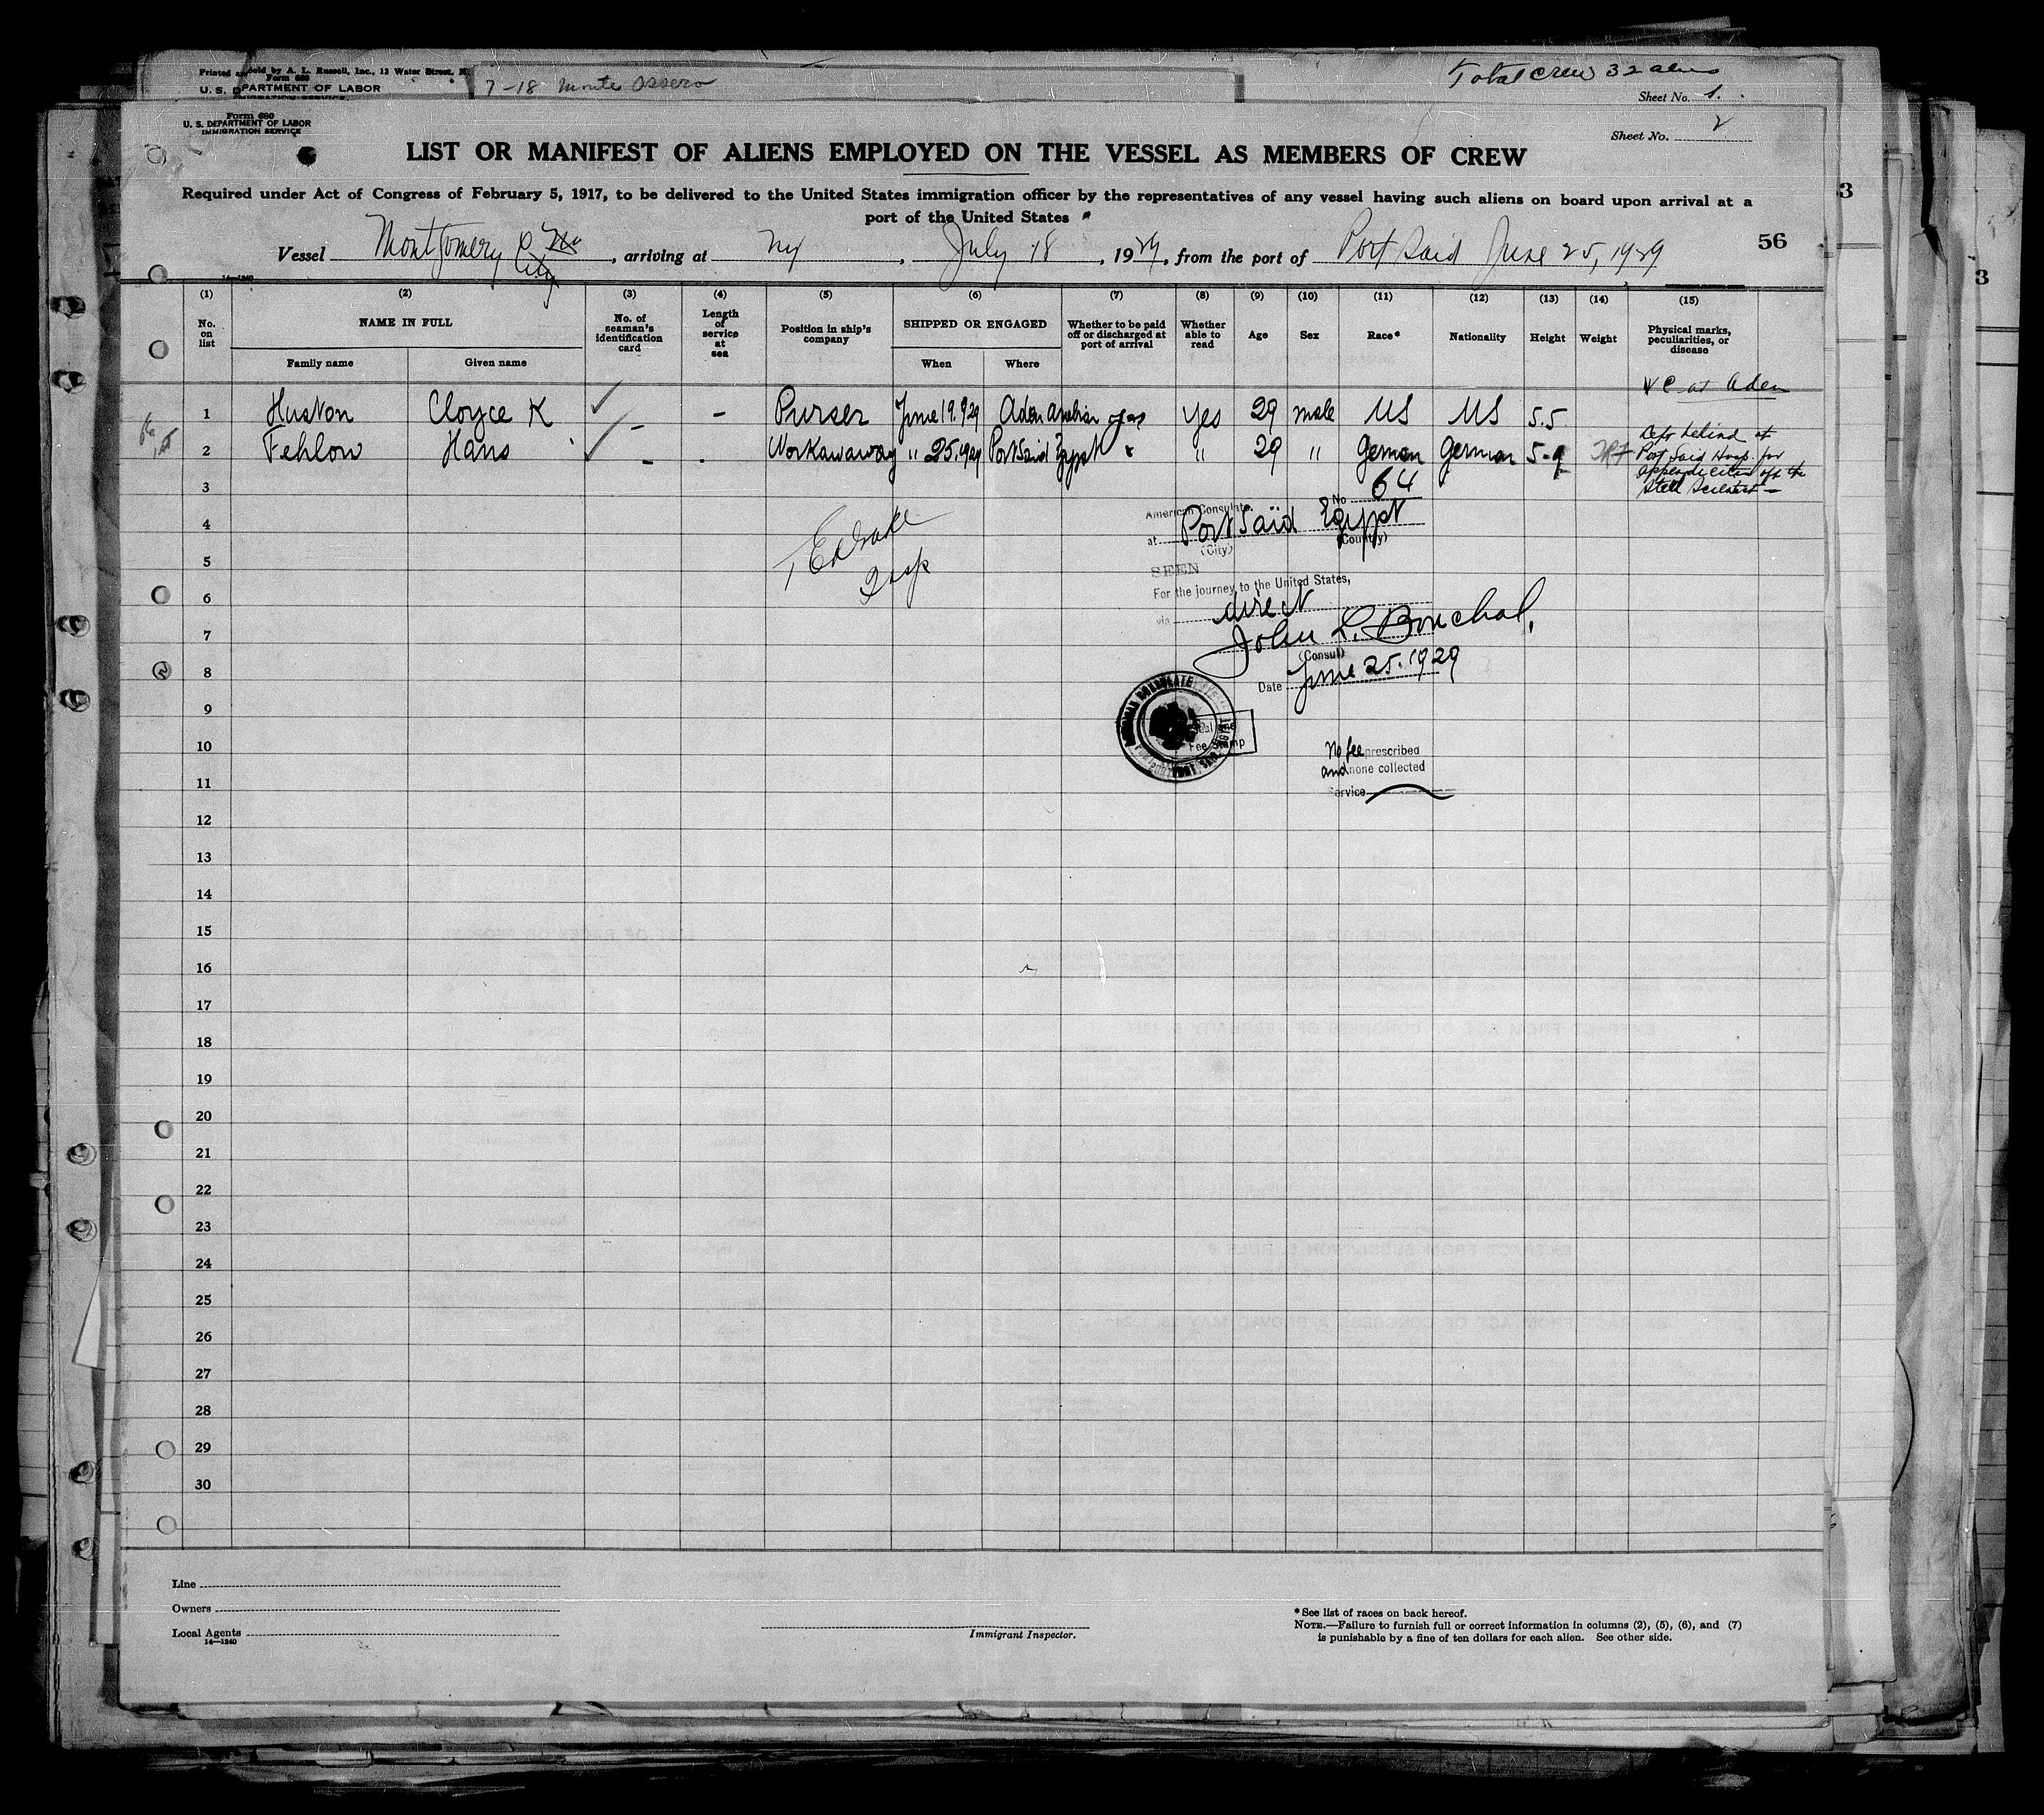 Printed and sold by A. L. Russell, Inc., 12 Water Street,
Form 680
U. S. DEPARTMENT OF LABOR
7-18 Monte Ossero
Total crew 32 aliens
Sheet No. 1.
Form 680
U. S. DEPARTMENT OF LABOR
IMMIGRATION SERVICE
Sheet No. 2
LIST OR MANIFEST OF ALIENS EMPLOYED ON THE VESSEL AS MEMBERS OF CREW
Required under Act of Congress of February 5, 1917, to be delivered to the United States immigration officer by the representatives of any vessel having such aliens on board upon arrival at a
port of the United States
Vessel Montgomery City, arriving at NY, July 18, 1929, from the port of Port Said June 25, 1929
56
3
3
14—1240
(1) (2) (3) (4) (5) (6) (7) (8) (9) (10) (11) (12) (13) (14) (15)
No. on list
NAME IN FULL
Family name
Given name
No. of seaman's identification card
Length of service at sea
Position in ship's company
SHIPPED OR ENGAGED
When
Where
Whether to be paid off or discharged at port of arrival
Whether able to read
Age
Sex
Race*
Nationality
Height
Weight
Physical marks, peculiarities, or disease
at Aden
1 Huston Cloyce K - - Purser June 19. 929 Aden Arabia yes Yes 29 male US US 5.5
2 Fehlow Hans - . Workaway " 25. 929 Port Said Egypt " " 29 " German German 5-9
Left behind at
Port Said Hosp. for
appendicitis off the
3
4
5
6
7
8
9
10
11
12
13
14
15
16
17
18
19
20
21
22
23
24
25
26
27
28
29
30
No 64
American Consulate
at Port Saïd Egypt
(City) (Country)
SEEN
For the journey to the United States,
via direct
John L. Bouchal,
(Consul)
Date June 25. 1929
Fee Stamp
No fee prescribed
and none collected
Service
Line
Owners
Local Agents
14—1240
Immigrant Inspector.
*See list of races on back hereof.
NOTE.—Failure to furnish full or correct information in columns (2), (5), (6), and (7)
is punishable by a fine of ten dollars for each alien. See other side.